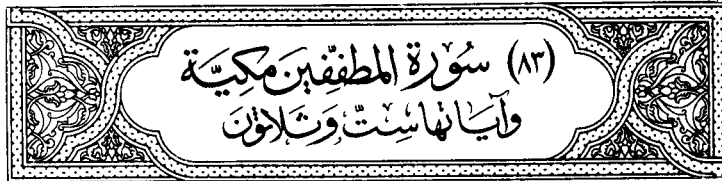 (٨٣) سُورَة المطفّفِين مَكِيَّة
وآيَاتهَا سِتّ وَثَلاثون